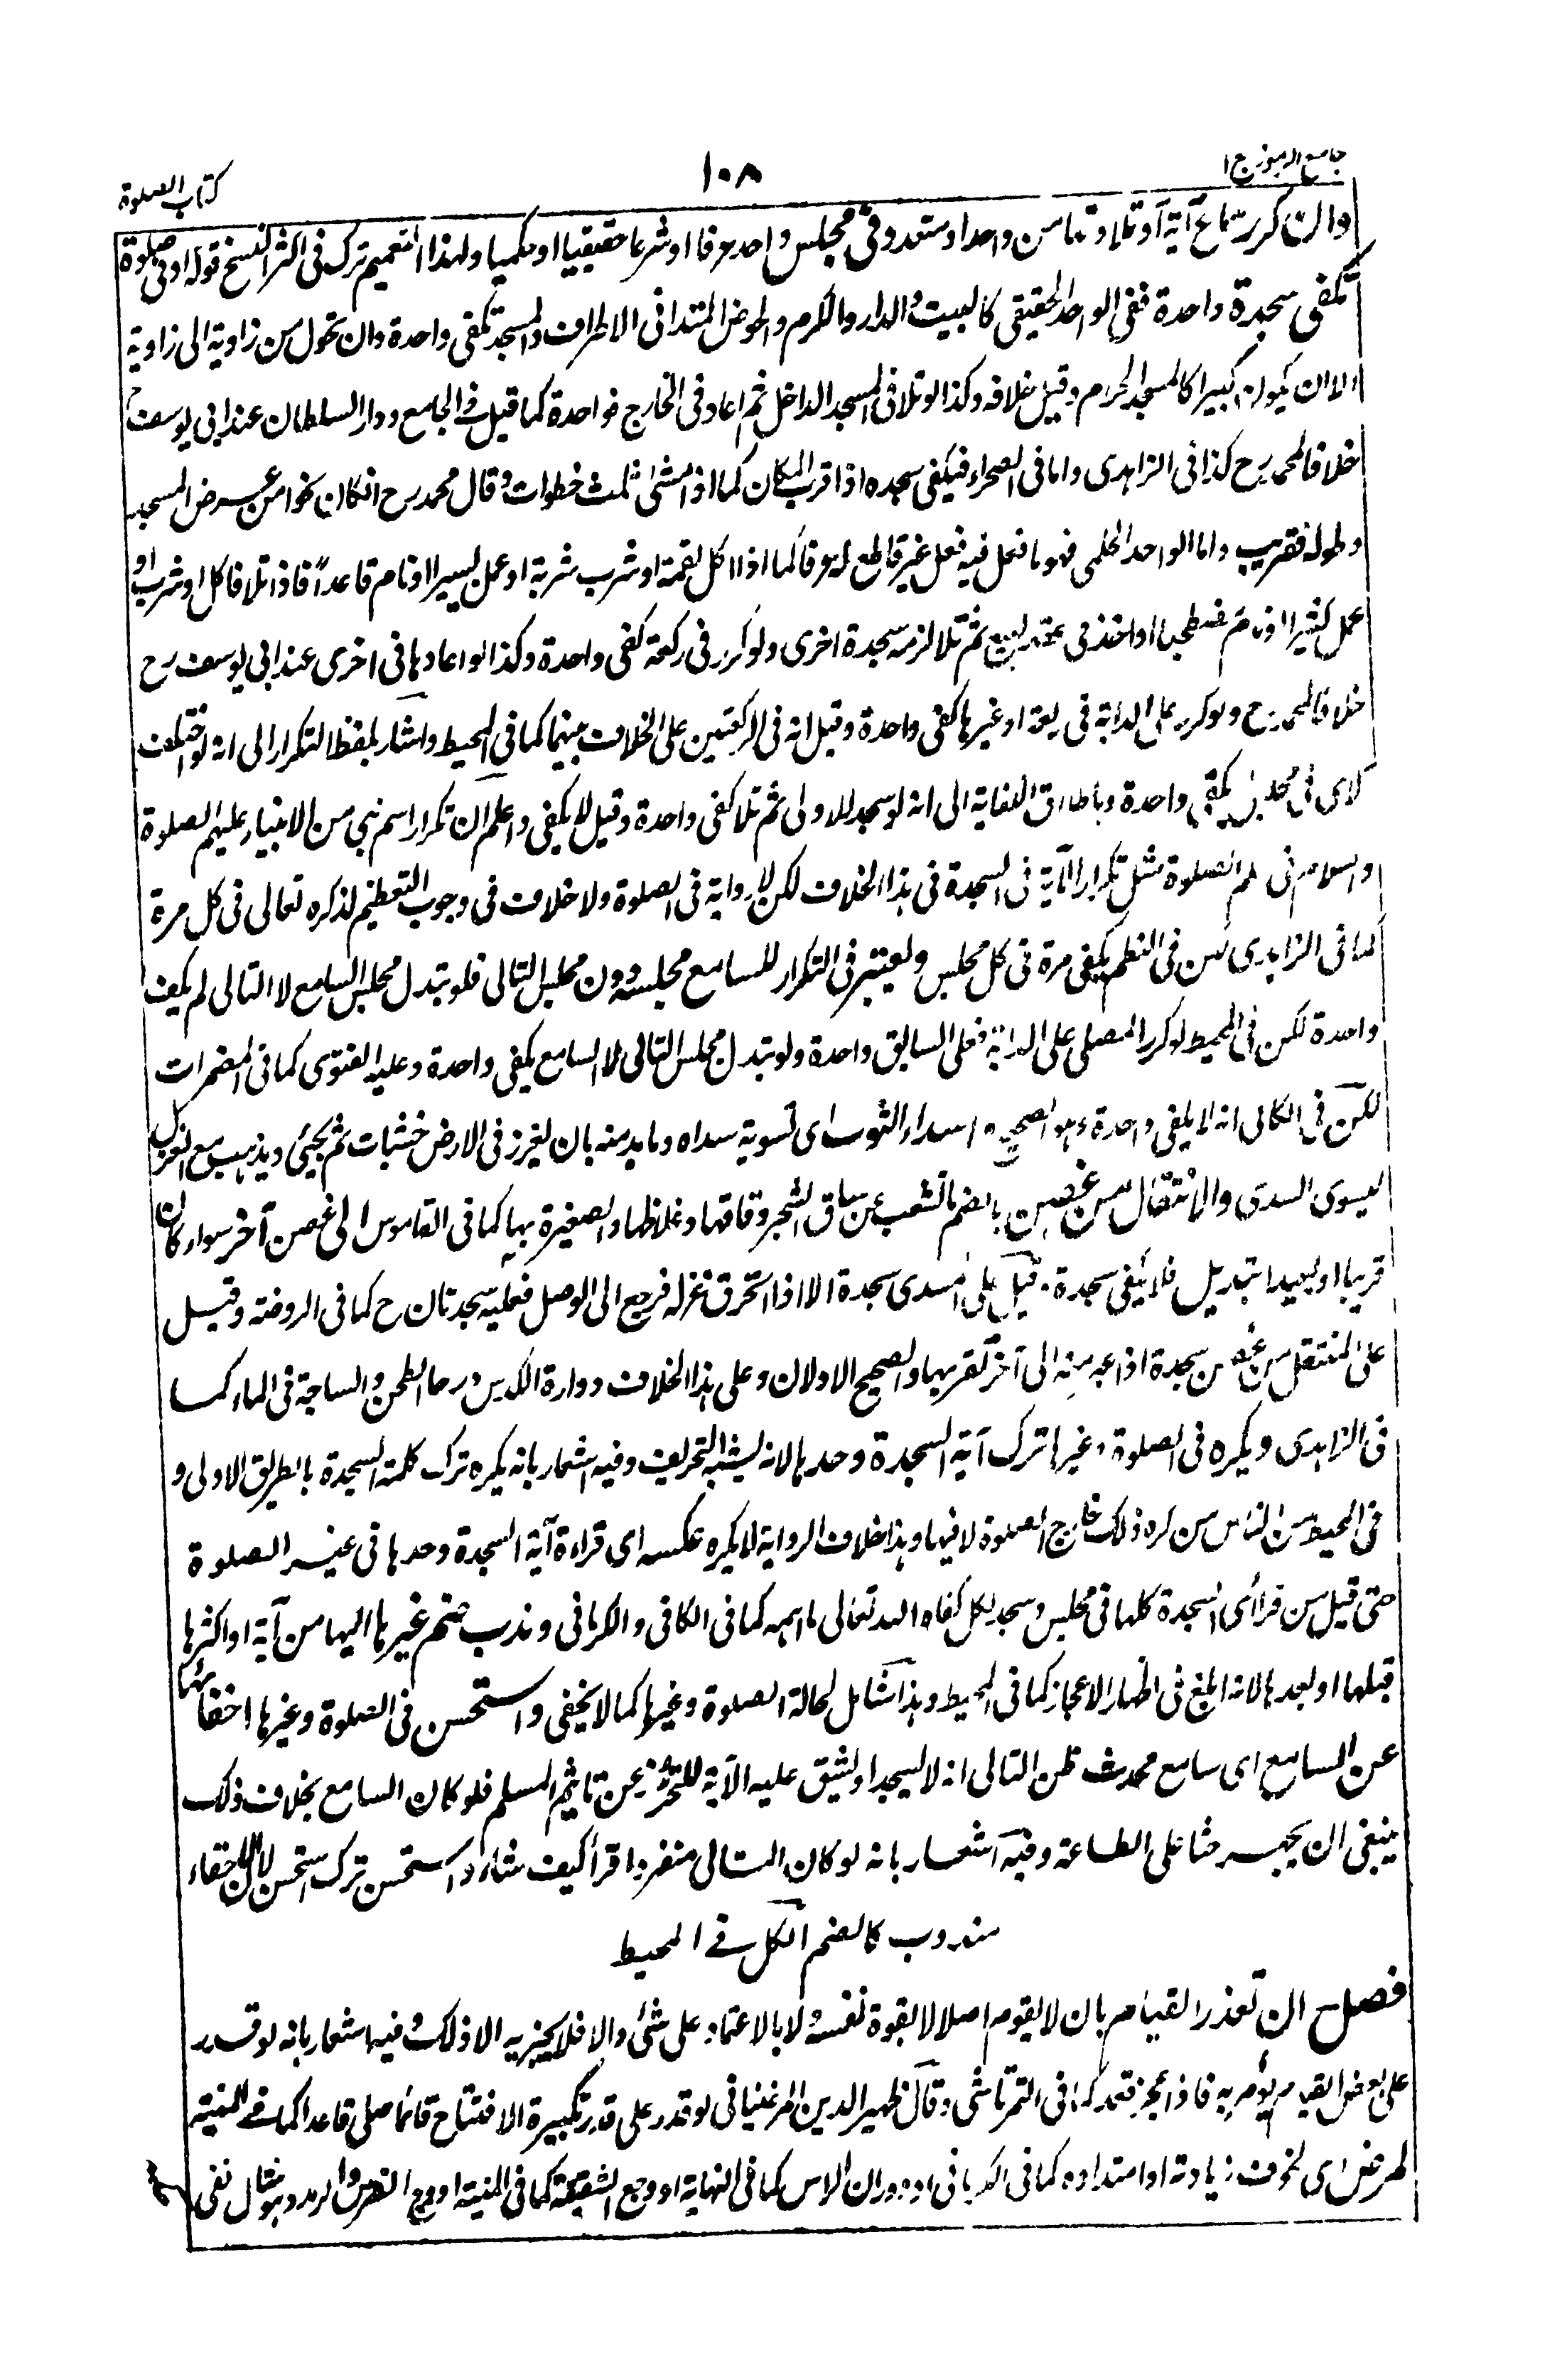 جامع الرموز ج ١
١٠٨
كتاب الصلوة
وان كرر سماع آية او تلاوتها من واحد او متعدد وفى مجلس واحد عرفا او شرعا حقيقيا او حكميا ولهذا التعميم ترك فى اكثر النسخ قوله او فى صلوة
تكفى سجدة واحدة ففى الواحد الحقيقى كالبيت والدار والكرم والحوض الممتد فى الاطراف والمسجد تكفى واحدة وان تحول من زاوية الى زاوية
الا ان يكون كبيرا كالمسجد الحرام وقيل بخلافه وكذا لو تلا فى المسجد الداخل ثم اعاد فى الخارج فواحدة كما قيل فى الجامع ودار السلطان عند ابى يوسف رح
خلافا لمحمد رح كذا فى الزاهدى واما فى الصحراء فيكفى سجدة اذا قرب المكان كما اذا مشى ثلث خطوات وقال محمد رح ان كان نحوا من عرض المسجد
وطوله فقريب واما الواحد الحكمى فهو ما فعل فيه فعل غير قاطع له عرفا كما اذا اكل لقمة او شرب شربة او عمل يسيرا او نام قاعدا فاذا تلا فاكل او شرب او
عمل كثيرا او نام مضطجعا او اخذ فى عقد البيع ثم تلا لزمه سجدة اخرى ولو كرر فى ركعة كفى واحدة وكذا لو اعادها فى اخرى عند ابى يوسف رح
خلافا لمحمد رح ولو كرر على الدابة فى ركعة او غيرها كفى واحدة وقيل انه فى الركعتين على الخلاف بينهما كما فى المحيط واشار بلفظ التكرار الى انه لو اختلفت
الآى فى مجلس لم يكف واحدة وباطلاق الكفاية الى انه لو سجد للاولى ثم تلا كفى واحدة وقيل لا يكفى واعلم ان تكرار اسم نبى من الانبياء عليهم الصلوة
والسلام فى الصلوة مثل تكرار الآية فى السجدة فى هذا الخلاف لكن لا رواية فى الصلوة ولا خلاف فى وجوب التعظيم لذكره تعالى فى كل مرة
كما فى الزاهدى لكن فى النظم يكفى مرة فى كل مجلس ويعتبر فى التكرار للسامع مجلسه دون مجلس التالى فلو تبدل مجلس السامع لا التالى لم يكف
واحدة لكن فى المحيط لو كرر المصلى على الدابة فعلى السائق واحدة ولو تبدل مجلس التالى لا السامع يكفى واحدة وعليه الفتوى كما فى المضمرات
لكن فى الكافى انه لا يكفى واحدة وهو الصحيح واسداء الثوب اى تسوية سداه وما يد منه بان يغرز فى الارض خشبات ثم يجئ ويذهب مع الغزل
ليسوى السدى والانتقال من غصن بالضم ما تشعب عن ساق الشجر دقاقها وغلاظها والصغيرة بهاء كما فى القاموس الى غصن آخر سواء كان
قريبا او بعيدا تبديل فلا يكفى سجدة وقيل على المسدى سجدة الا اذا استحرق غزله فرجع الى الوصل فعليه سجدتان ح كما فى الروضة وقيل
على المنتقل من غصن سجدة اذا عبر منه الى آخر لقربهما والصحيح الاولان وعلى هذا الخلاف دوارة الكدس ورحا الطحن والسباحة فى الماء كما
فى الزاهدى ويكره فى الصلوة وغيرها ترك آية السجدة وحدها لانه يشبه التحريف وفيه اشعار بانه يكره ترك كلمة السجدة بالطريق الاولى و
فى المحيط من الناس من كره ذلك خارج الصلوة لا فيها وهذا خلاف الرواية لا يكره عكسه اى قراءة آية السجدة وحدها فى غير الصلوة
حتى قيل من قرأ آى السجدة كلها فى مجلس وسجد لكل كفاه الله تعالى ما اهمه كما فى الكافى والكرمانى وندب ضم غيرها اليها من آية او اكثرها
قبلها او بعدها لانه ابلغ فى اظهار الاعجاز كما فى المحيط وهذا شامل لحالة الصلوة وغيرها كما لا يخفى واستحسن فى الصلوة وغيرها اخفائها
عن السامع اى سامع محدث ظن التالى انه لا يسجد او يشق عليه الآية للتحرز عن تاثيم المسلم فلو كان السامع بخلاف ذلك
ينبغى ان يجهر حثا على الطاعة وفيه اشعار بانه لو كان التالى منفردا قرأ كيف شاء و استحسن ترك استحسن لان الاخفاء
مندوب كالضم الكل فى المحيط
فصل ان تعذر القيام بان لا يقوم اصلا لا بقوة نفسه ولا بالاعتماد على شئ والا فلا يجزيه الا ذلك وفيه اشعار بانه لو قدر
على بعض القيام يؤمر به فاذا عجز فقعد كما فى التمرتاشى وقال ظهير الدين المرغينانى لو قدر على قدر تكبيرة الافتتاح قائما صلى قاعدا كما فى المنية
لمرض اى لخوف زيادته او امتداده كما فى الكرمانى او دوران الراس كما فى النهاية او وجع الشقيقة كما فى المنية او وجع الضرس والرمد وهو شال نفى